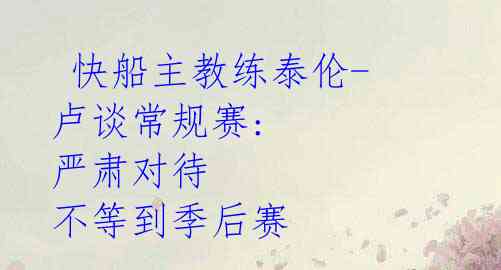 快船主教练泰伦-
卢谈常规赛:
严肃对待
不等到季后赛